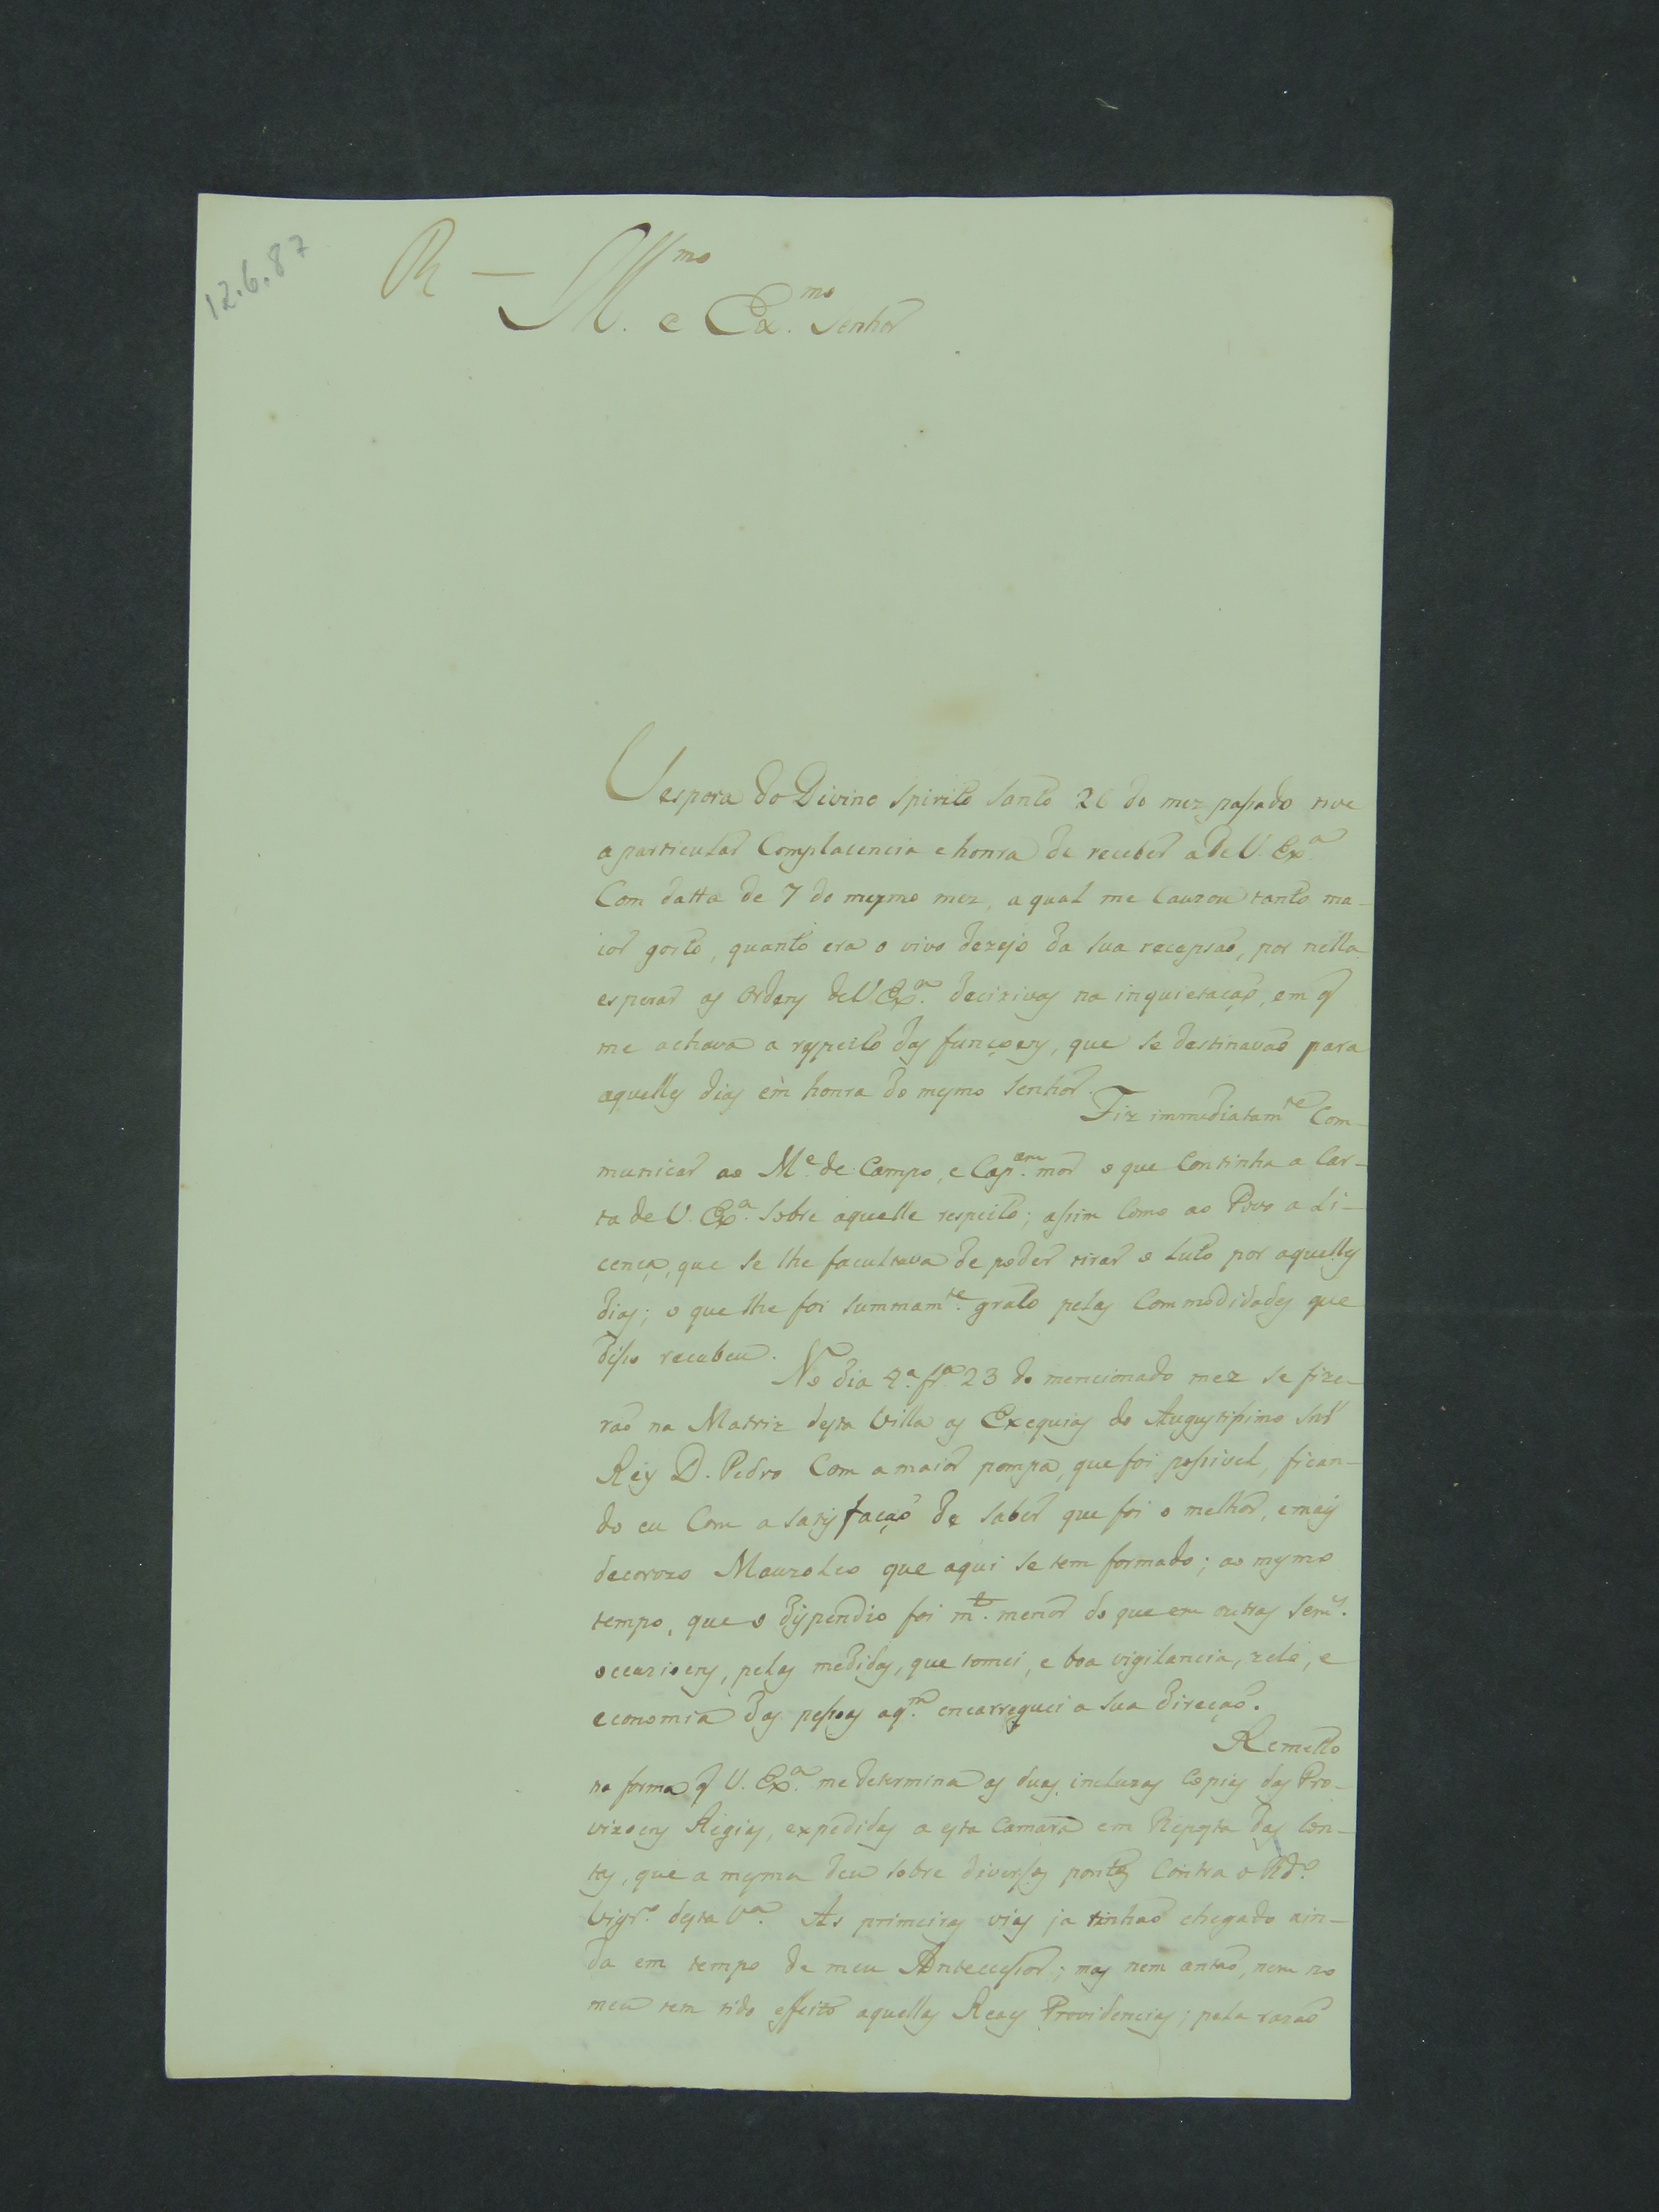 12.6.87
R — Ill.mo e Ex.mo Senhor
Vespera do Divino Spirito Santo 26 do mez passado tive
a particular Complacencia e honra de receber a de V. Ex.a
Com datta de 7 do mesmo mez, a qual me Cauzou tanto ma-
ior gosto, quanto era o vivo dezejo da sua recepsaõ, por nella
esperar as Ordens de V Ex.a decizivas na inquietaçaõ, em q
me achava a respeito das funçoens, que se destinavaõ para
aquelles dias em honra do mesmo Senhor.
Fiz immediatam.te Com-
municar ao M.e de Campo, e Cap.am mor o que Continha a Car-
ta de V. Ex.a Sobre aquelle respeito; assim Como ao Povo a Li-
cença, que se lhe facultava de poder tirar o Luto por aquelles
dias; o que lhe foi Summam.te grato pelas Commodidades que
disso recebeu.
No dia 4.a fr.a 23 do mencionado mez se fize-
raõ na Matriz desta Villa as Exequias do Augustissimo Snr
Rey D. Pedro Com a maior pompa, que foi possivel, fican-
do eu Com a satisfaçaõ de saber que foi o melhor, e mais
decorozo Mauzoleo que aqui se tem formado; ao mesmo
tempo, que o dispendio foi m.to menor do que em outras Sem.es
occazioens, pelas medidas, que tomei, e boa vigilancia, zelo, e
economia das pessoas aq.m encarreguei a sua direçaõ.
Remetto
na forma q V. Ex.a me determina as duas incluzas Copias das Pro-
vizoens Regias, expedidas a esta Camara em Reposta das Con-
tas, que a mesma deu sobre diversos pontos Contra o Rd.o
Vigr.o desta V.a As primeiras vias ja tinhaõ chegado ain-
da em tempo de meu Antecessor; mas nem antaõ, nem no
meu tem tido effeito aquellas Reaes Providencias; pela razaõ